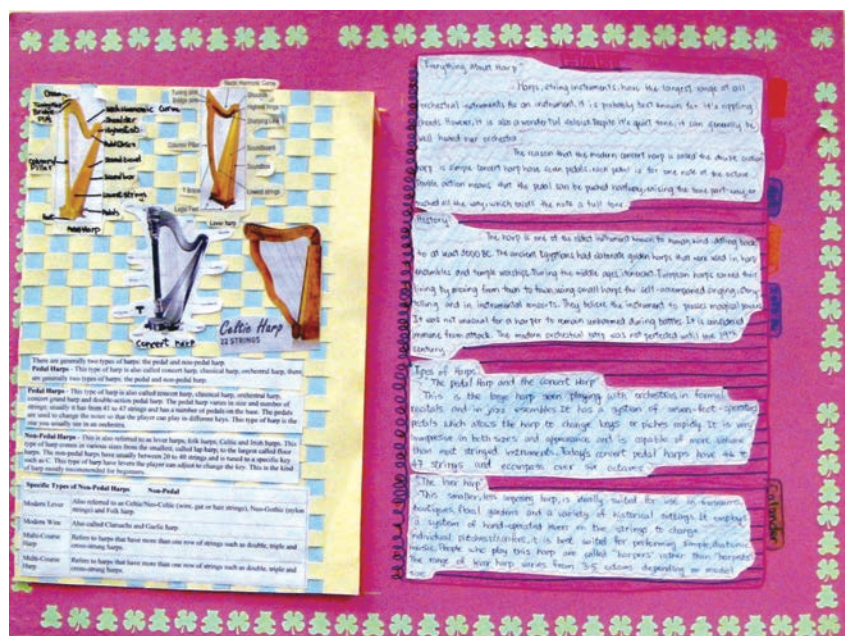 Crown
Tuning Pins
Bridge Pins
Neck Harmonic Curve
Shoulder
Column Pillar
Sound board
Sound bar
Lowest strings
Pedals
Pedal Harp
Neck Harmonic Curve
Tuning pins
Bridge pins
Shoulder
Highest strings
Sharping Lever
Column Pillar
Soundboard
Soundbox
T Brace
Lowest strings
Legs/ Feet
Lever harp
Concert harp
Celtic Harp
22 STRINGS
There are generally two types of harps: the pedal and non-pedal harp.
Pedal Harps - This type of harp is also called concert harp, classical harp, orchestral harp, there
are generally two types of harps: the pedal and non-pedal harp.
Pedal Harps - This type of harp is also called concert harp, classical harp, orchestral harp,
concert grand harp and double-action pedal harp. The pedal harp varies in size and number of
strings; usually it has from 41 to 47 strings and has a number of pedals on the base. The pedals
are used to change the notes so that the player can play in different keys. This type of harp is the
one you usually see in an orchestra.
Non-Pedal Harps - This is also referred to as lever harps, folk harps, Celtic and Irish harps. This
type of harp comes in various sizes from the smallest, called lap harp, to the largest called floor
harps. The non-pedal harps have usually between 20 to 40 strings and is tuned to a specific key
such as C. This type of harp have levers the player can adjust to change the key. This is the kind
of harp mostly recommended for beginners.
Specific Types of Non-Pedal Harps Non-Pedal
Modern Lever Also referred to as Celtic/Neo-Celtic (wire, gut or hair strings), Neo-Gothic (nylon
strings) and Folk harp.
Modern Wire Also called Clarsachs and Gaelic harp.
Multi-Course
Harp Refers to harps that have more than one row of strings such as double, triple and
cross-strung harps.
Multi-Course
Harp Refers to harps that have more than one row of strings such as double, triple and
cross-strung harps.
"Everything About Harp"
Harps, string instruments, have the largest range of all
orchestral instruments. As an instrument, it is probably best known for it's rippling
chords. However, it is also a wonderful soloist. Despite it's quiet tone, it can generally be
well heard over orchestra.
The reason that the modern concert harp is called the double action
harp is simple. Concert harp have seven pedals, each pedal is for one note of the octave.
Double action means that the pedal can be pushed halfway, raising the tone part-way or
pushed all the way, which raises the note a full tone.
History
The harp is one of the oldest instrument known to human kind, dating back
to at least 3000 BC. The ancient Egyptians had elaborate golden harps that were used in harp
ensembles and temple worship. During the middle ages, itinerant European harpers earned their
living by moving from town to town, using small harps for self-accompanied singing, story
telling, and in instrumental consorts. They believe the instrument to possess magical powers.
It was not unusual for a harper to remain unharmed during battles. It is considered
immune from attack. The modern orchestral harp was not perfected until the 19th
century.
Types of Harps:
"The pedal Harp and the Concert Harp"
This is the large harp seen playing with orchestras in formal
recitals and in jazz esembles. It has a system of seven-foot-operated
pedals which allows the harp to change keys or pitches rapidly. It is very
impressive in both sizes and appearance and is capable of more volume
than most stringed instruments. Today's concert pedal harps have 46 to
47 strings and encompass over six octaves.
"The lever harp"
This smaller, less imposing harp, is ideally suited for use in
boutiques, floral gardens and a variety of historical settings. It employs
a system of hand-operated levers on the strings to change
individual pitches
music. People who play this harp are called "harpers" rather than "harpists".
The range of lever harp varies from 3-5 octaves depending on model
Calendar